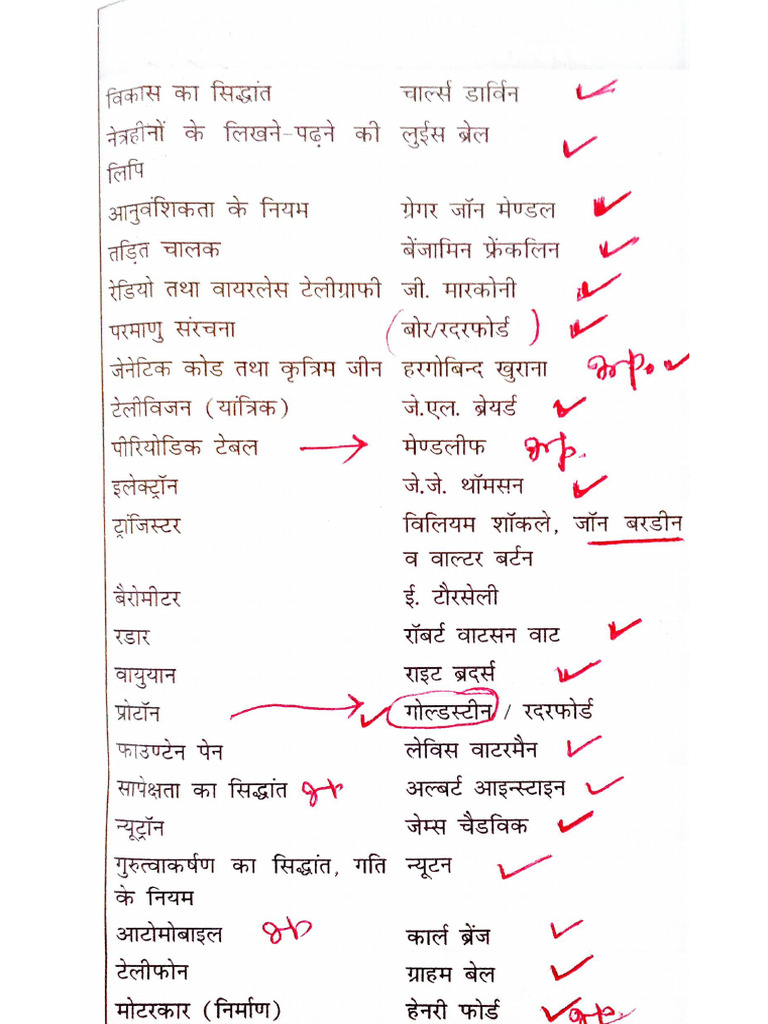 विकास का सिद्धांत चार्ल्स डार्विन
नेत्रहीनों के लिखने-पढ़ने की लुईस ब्रेल
लिपि
आनुवंशिकता के नियम ग्रेगर जॉन मेण्डल
तड़ित चालक बेंजामिन फ्रेंकलिन
रेडियो तथा वायरलेस टेलीग्राफी जी. मारकोनी
परमाणु संरचना (बोर/रदरफोर्ड)
जेनेटिक कोड तथा कृत्रिम जीन हरगोबिन्द खुराना
टेलीविजन (यांत्रिक) जे.एल. ब्रेयर्ड
पीरियोडिक टेबल मेण्डलीफ
इलेक्ट्रॉन जे.जे. थॉमसन
ट्रांजिस्टर विलियम शॉकले, जॉन बरडीन
व वाल्टर बर्टन
बैरोमीटर ई. टौरसेली
रडार रॉबर्ट वाटसन वाट
वायुयान राइट ब्रदर्स
प्रोटॉन गोल्डस्टीन / रदरफोर्ड
फाउण्टेन पेन लेविस वाटरमैन
सापेक्षता का सिद्धांत अल्बर्ट आइन्स्टाइन
न्यूट्रॉन जेम्स चैडविक
गुरुत्वाकर्षण का सिद्धांत, गति न्यूटन
के नियम
आटोमोबाइल कार्ल ब्रेंज
टेलीफोन ग्राहम बेल
मोटरकार (निर्माण) हेनरी फोर्ड